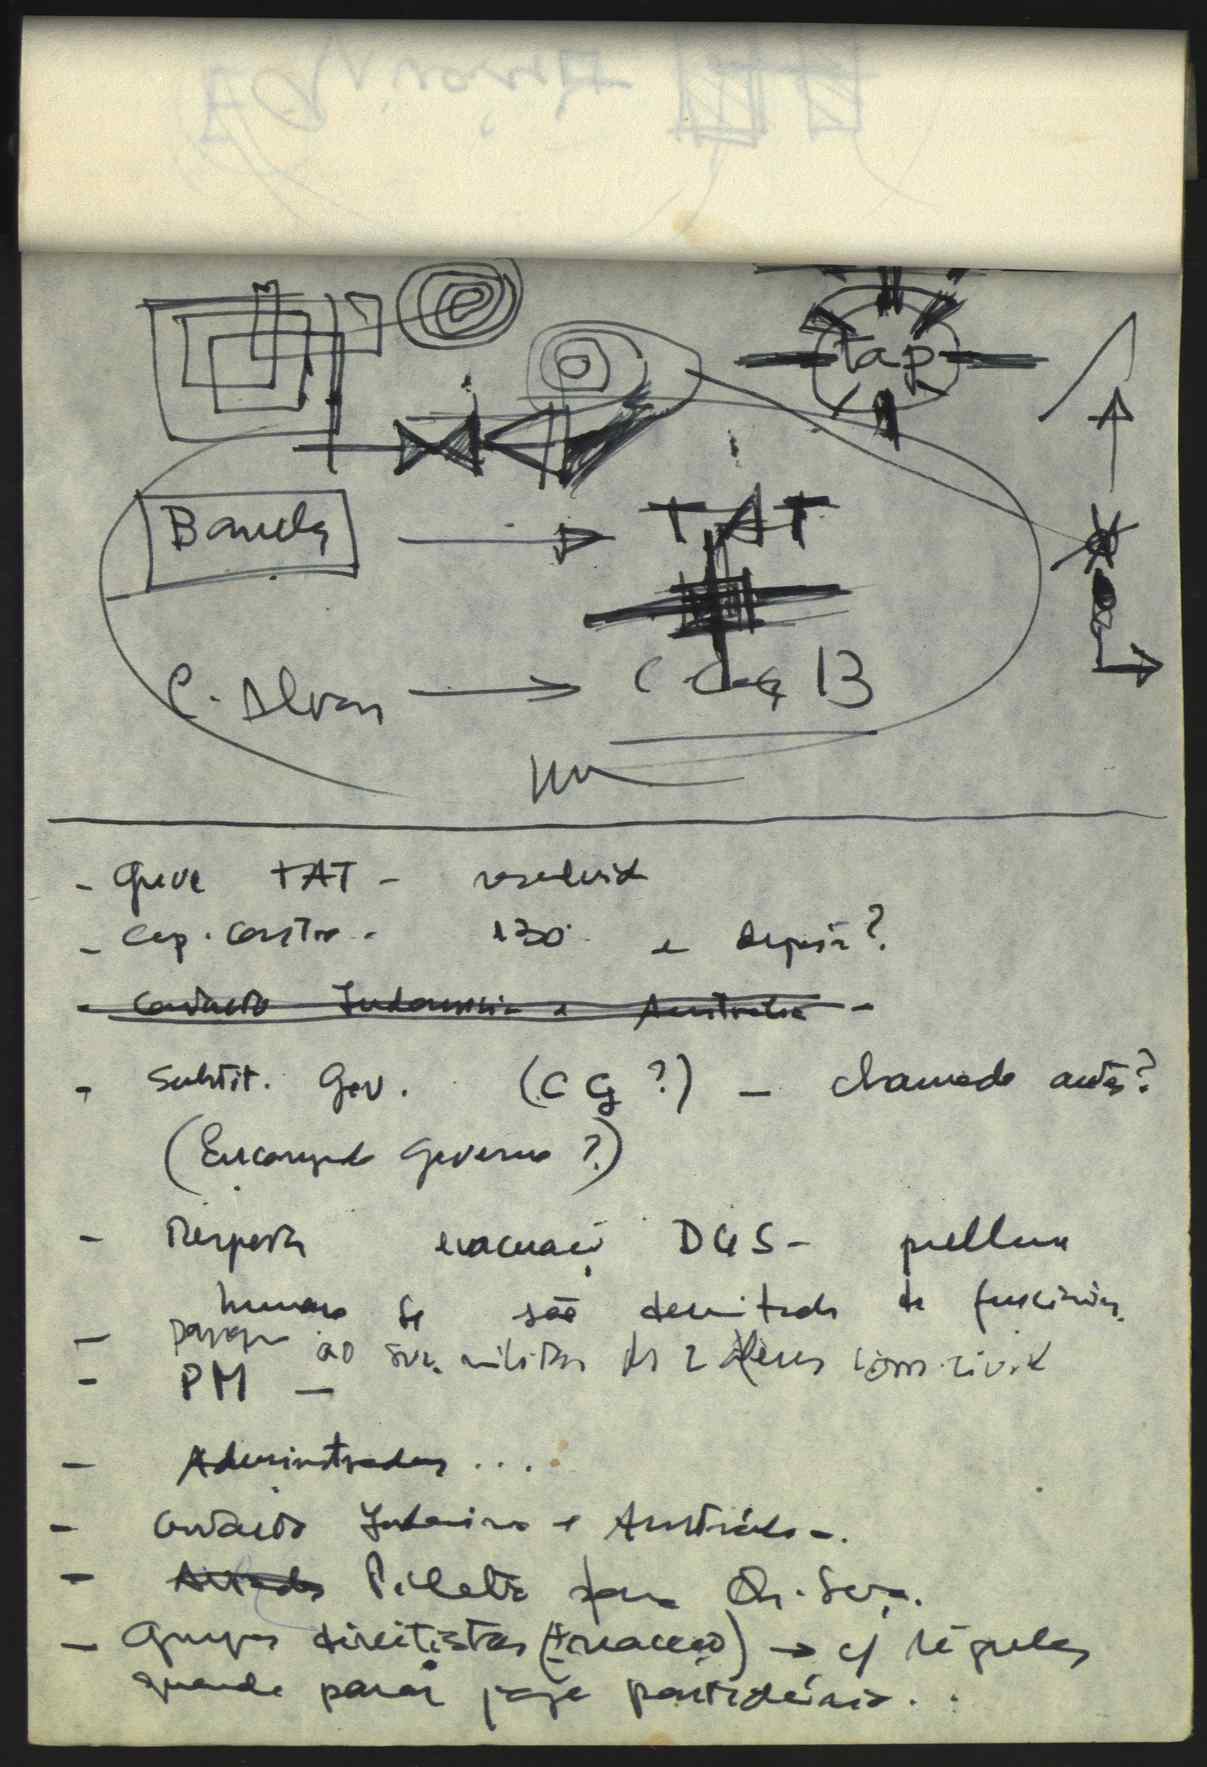 tap
Banda
TAT
C. Alves
C Caç 13
- Greve TAT - resolvida
- Cap. Castro - 130 e depois?
- Contacto Indonésia e Austrália -
- Substit. Gov. (CG?) - chamado antes?
(Encarregado Governo?)
- Resposta evacuação DGS - problema
humano se são demitidos de funcionários
- passagem ao serv. militar
- PM -
- Administradores ....
- Contacto Indonésia e Austrália -.
- Palacete para
- Grupos direitistas (+ reacção) → c/ régulos
quando parar jogo partidário. . .